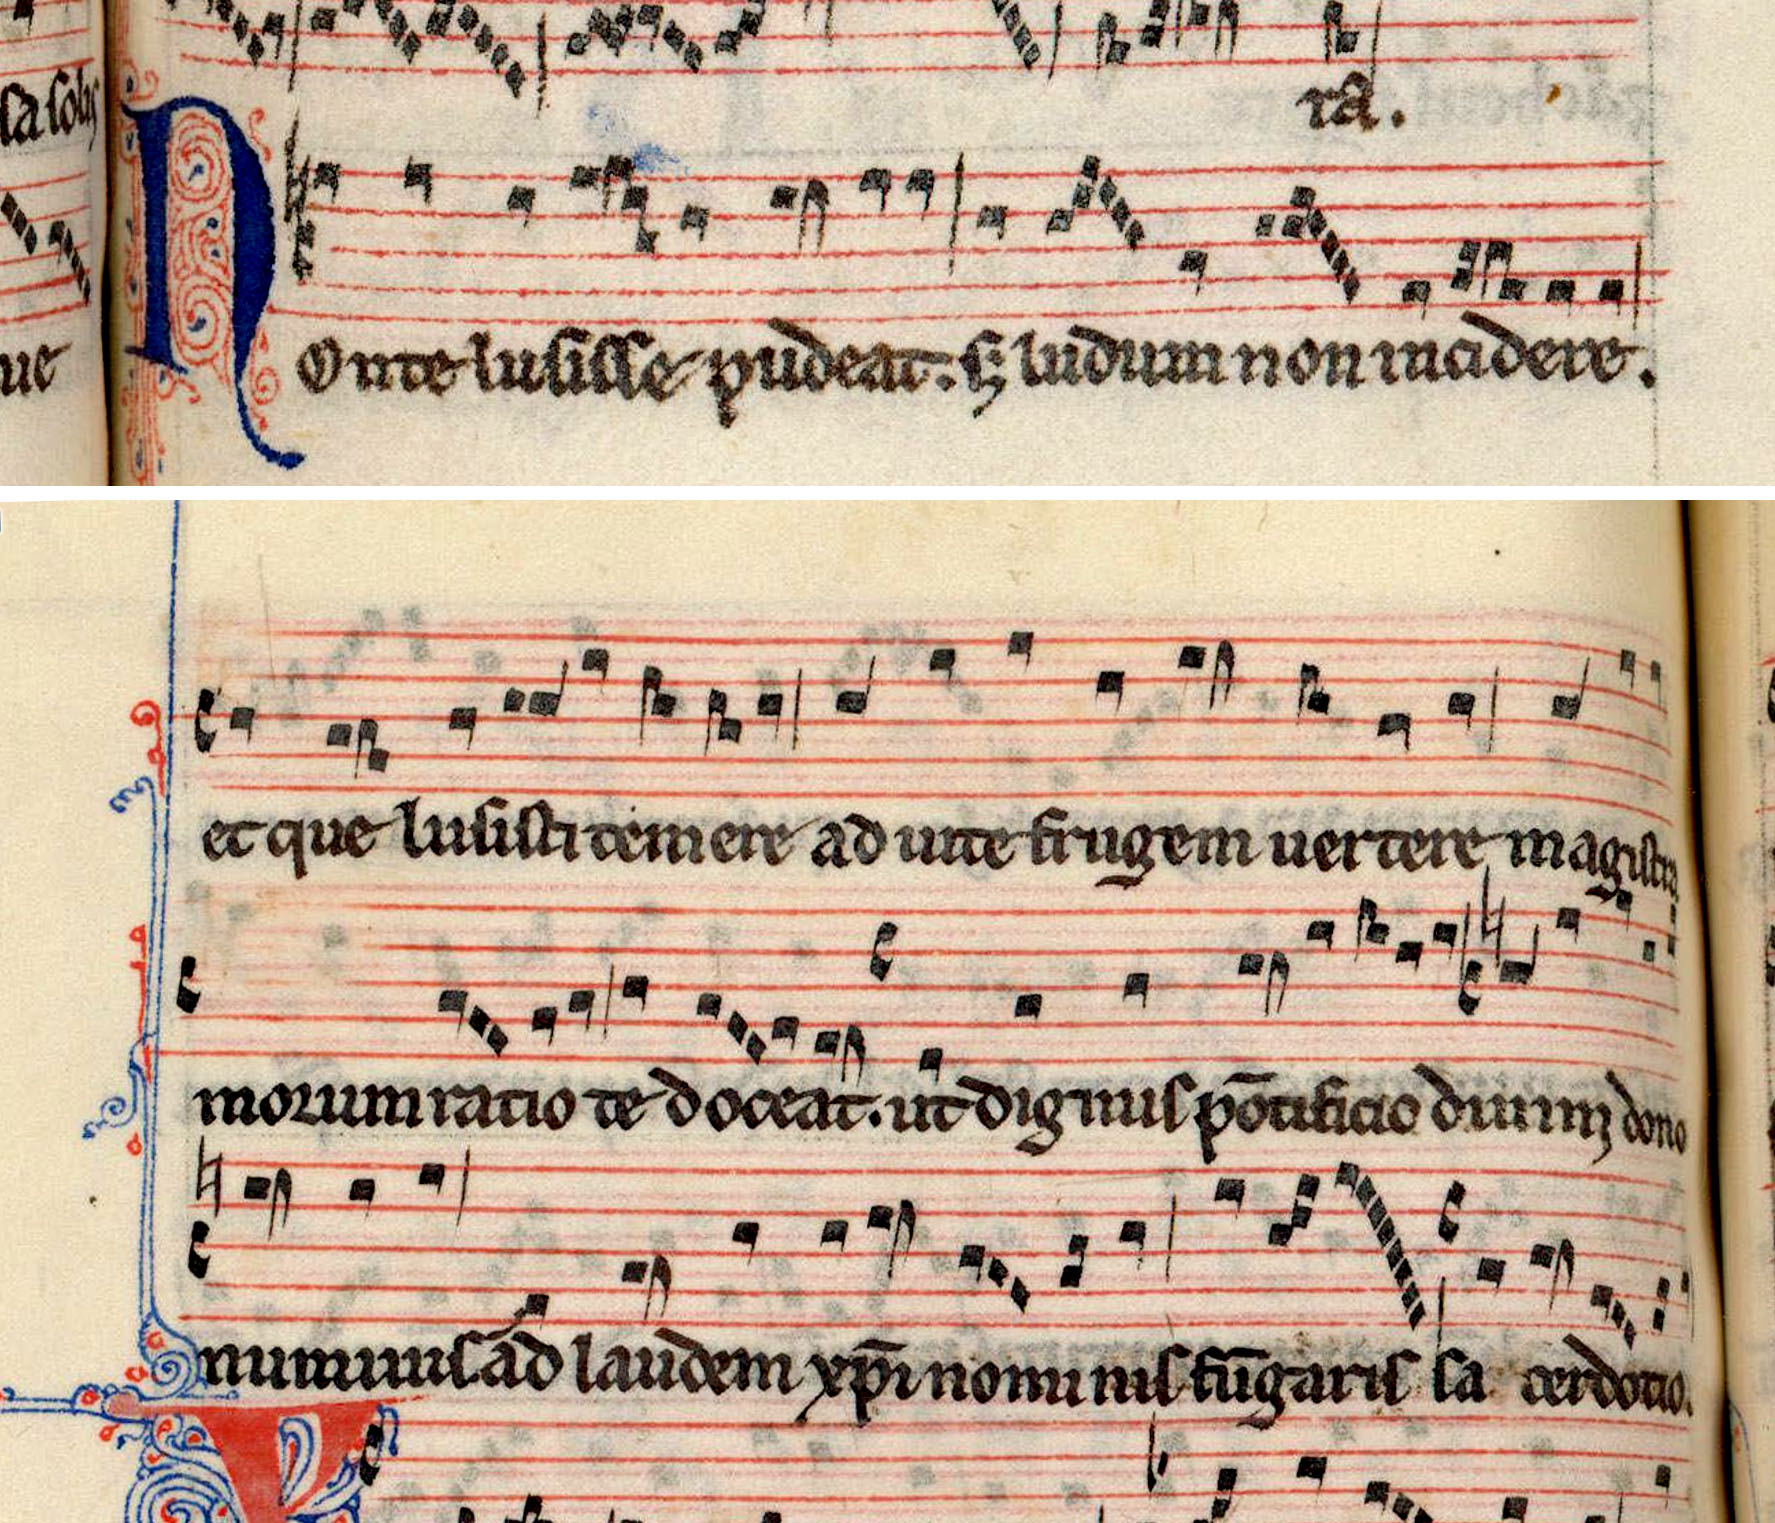 sa solis
ra.
ue
Non te lusisse pudeat. sꝫ ludum non incidere.
et que lusisti temere ad uite frugem uertere magistra
morum ratio te doceat. ut dignus põtificio diuini dono
numinis ad laudem xp̄i nominis fũgaris sa cerdotio.
V